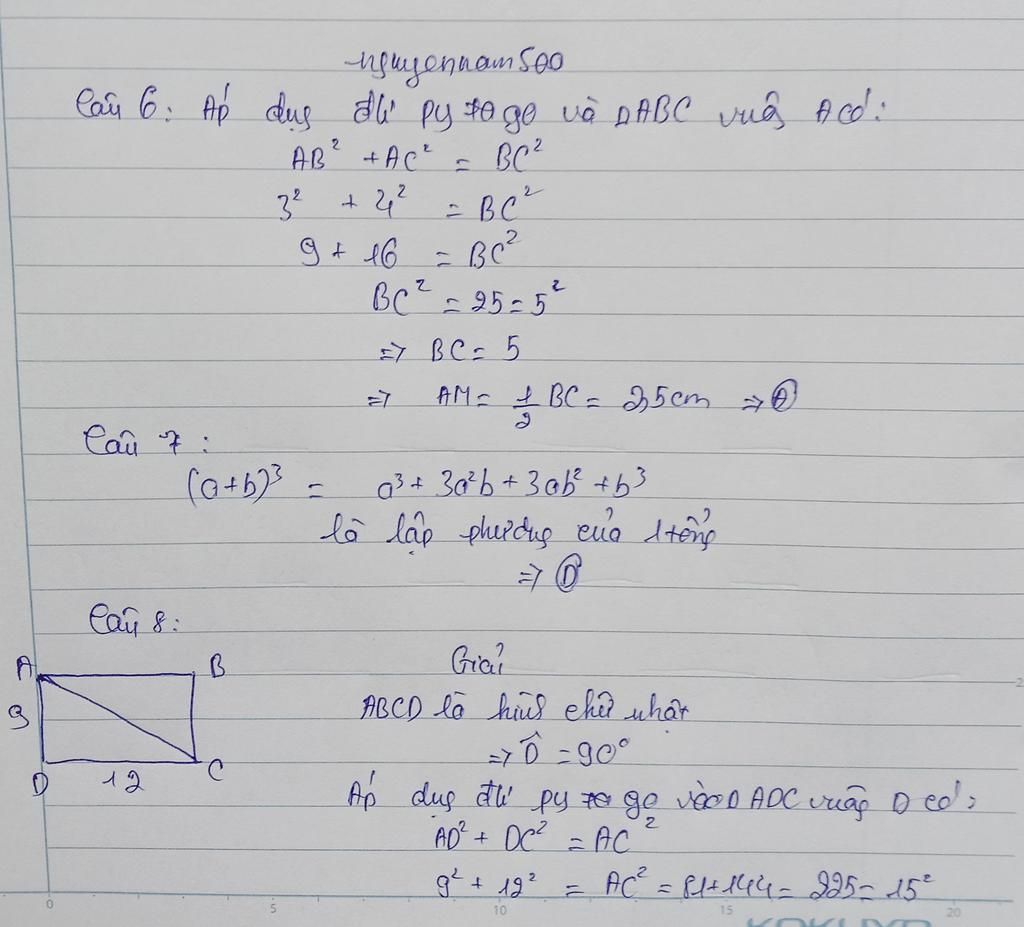 nguyennam500
Câu 6: Áp dụg đlí pytago và ΔABC vuôg A có:
AB² + AC² = BC²
3² + 4² = BC²
9 + 16 = BC²
BC² = 25 = 5²
=> BC = 5
=> AM = 1/2 BC = 2,5cm => Ⓐ
Câu 7:
(a+b)³ = a³ + 3a²b + 3ab² + b³
là lập phươg của 1 tổng
=> Ⓓ
Câu 8:
A B
Giải
9
ABCD là hìnhg chữ nhật
=> D̂ = 90°
D 12 C
Áp dụg đlí pytago vào Δ ADC vuôg D có:
AD² + DC² = AC²
9² + 12² = AC² = 81+144 = 225 = 15²
0 5 10 15 20